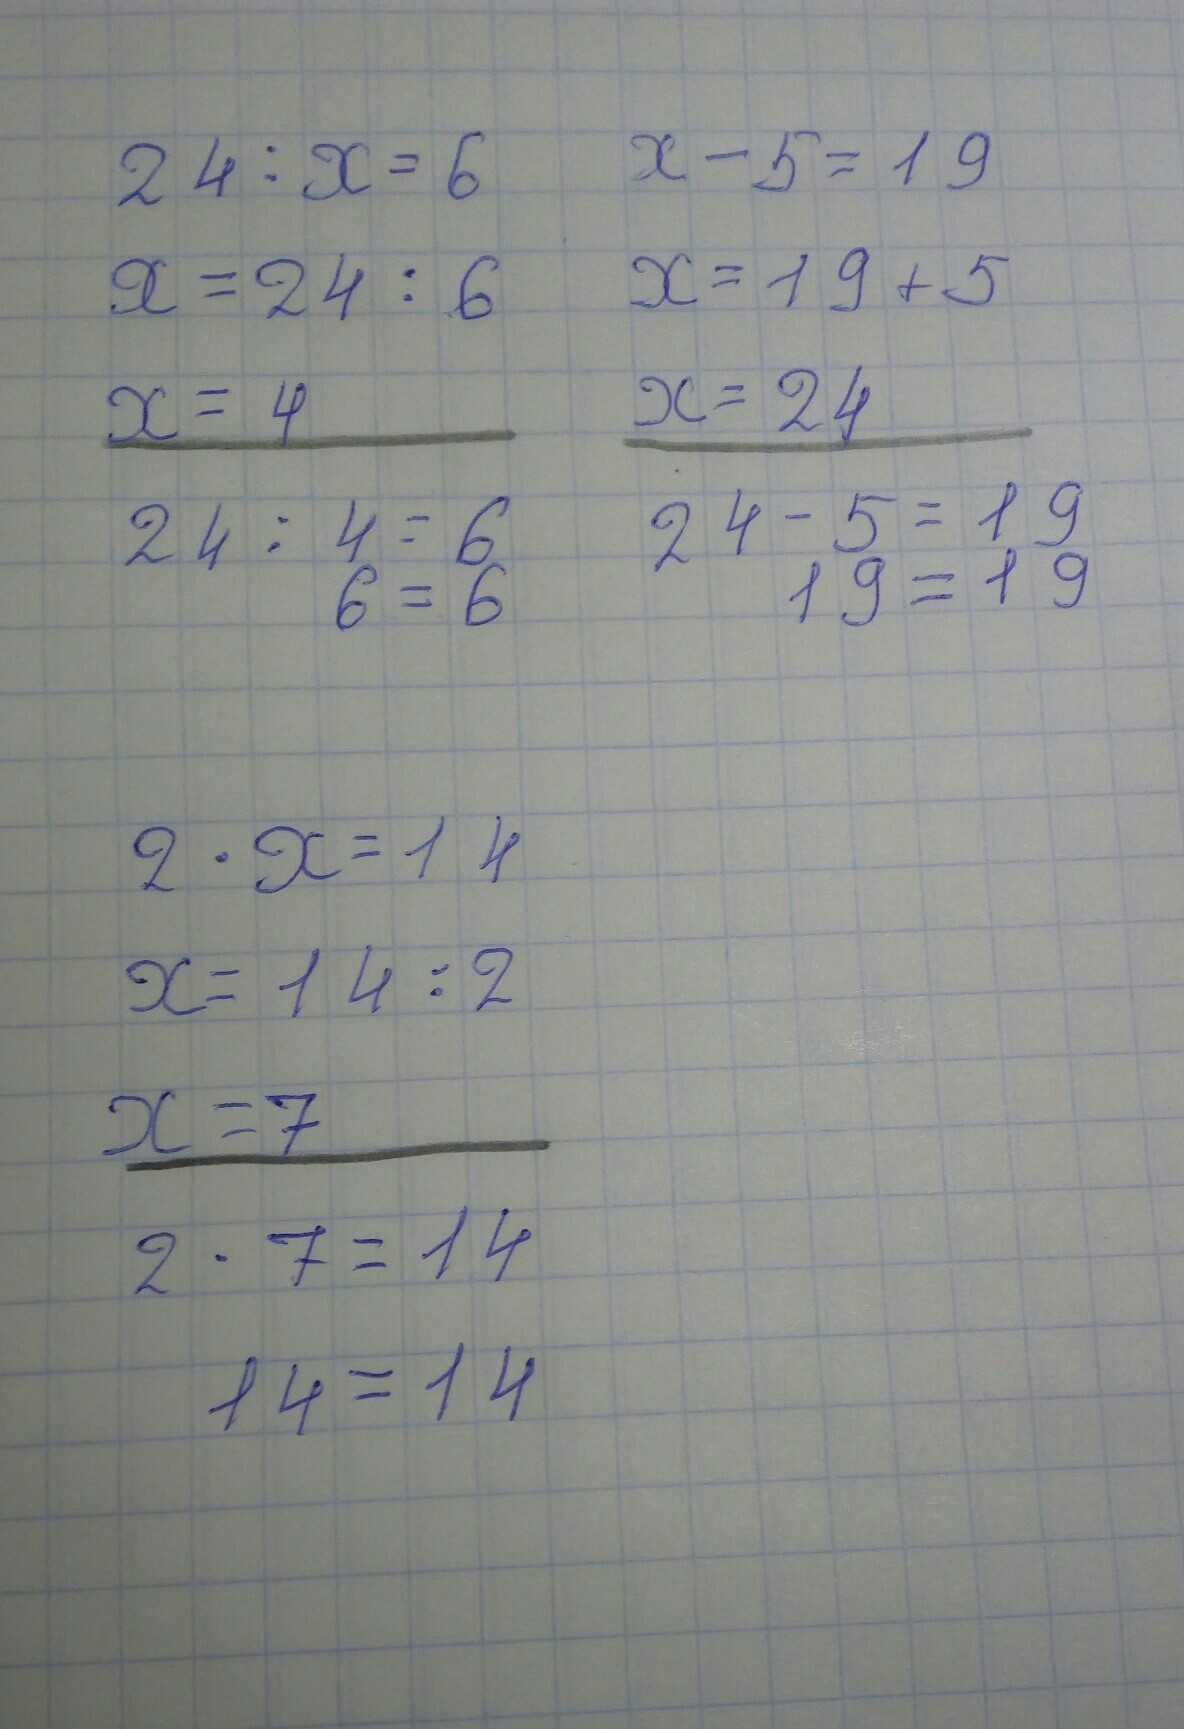 24 : x = 6
x = 24 : 6
x = 4
24 : 4 = 6
6 = 6
x - 5 = 19
x = 19 + 5
x = 24
24 - 5 = 19
19 = 19
2 · x = 14
x = 14 : 2
x = 7
2 · 7 = 14
14 = 14